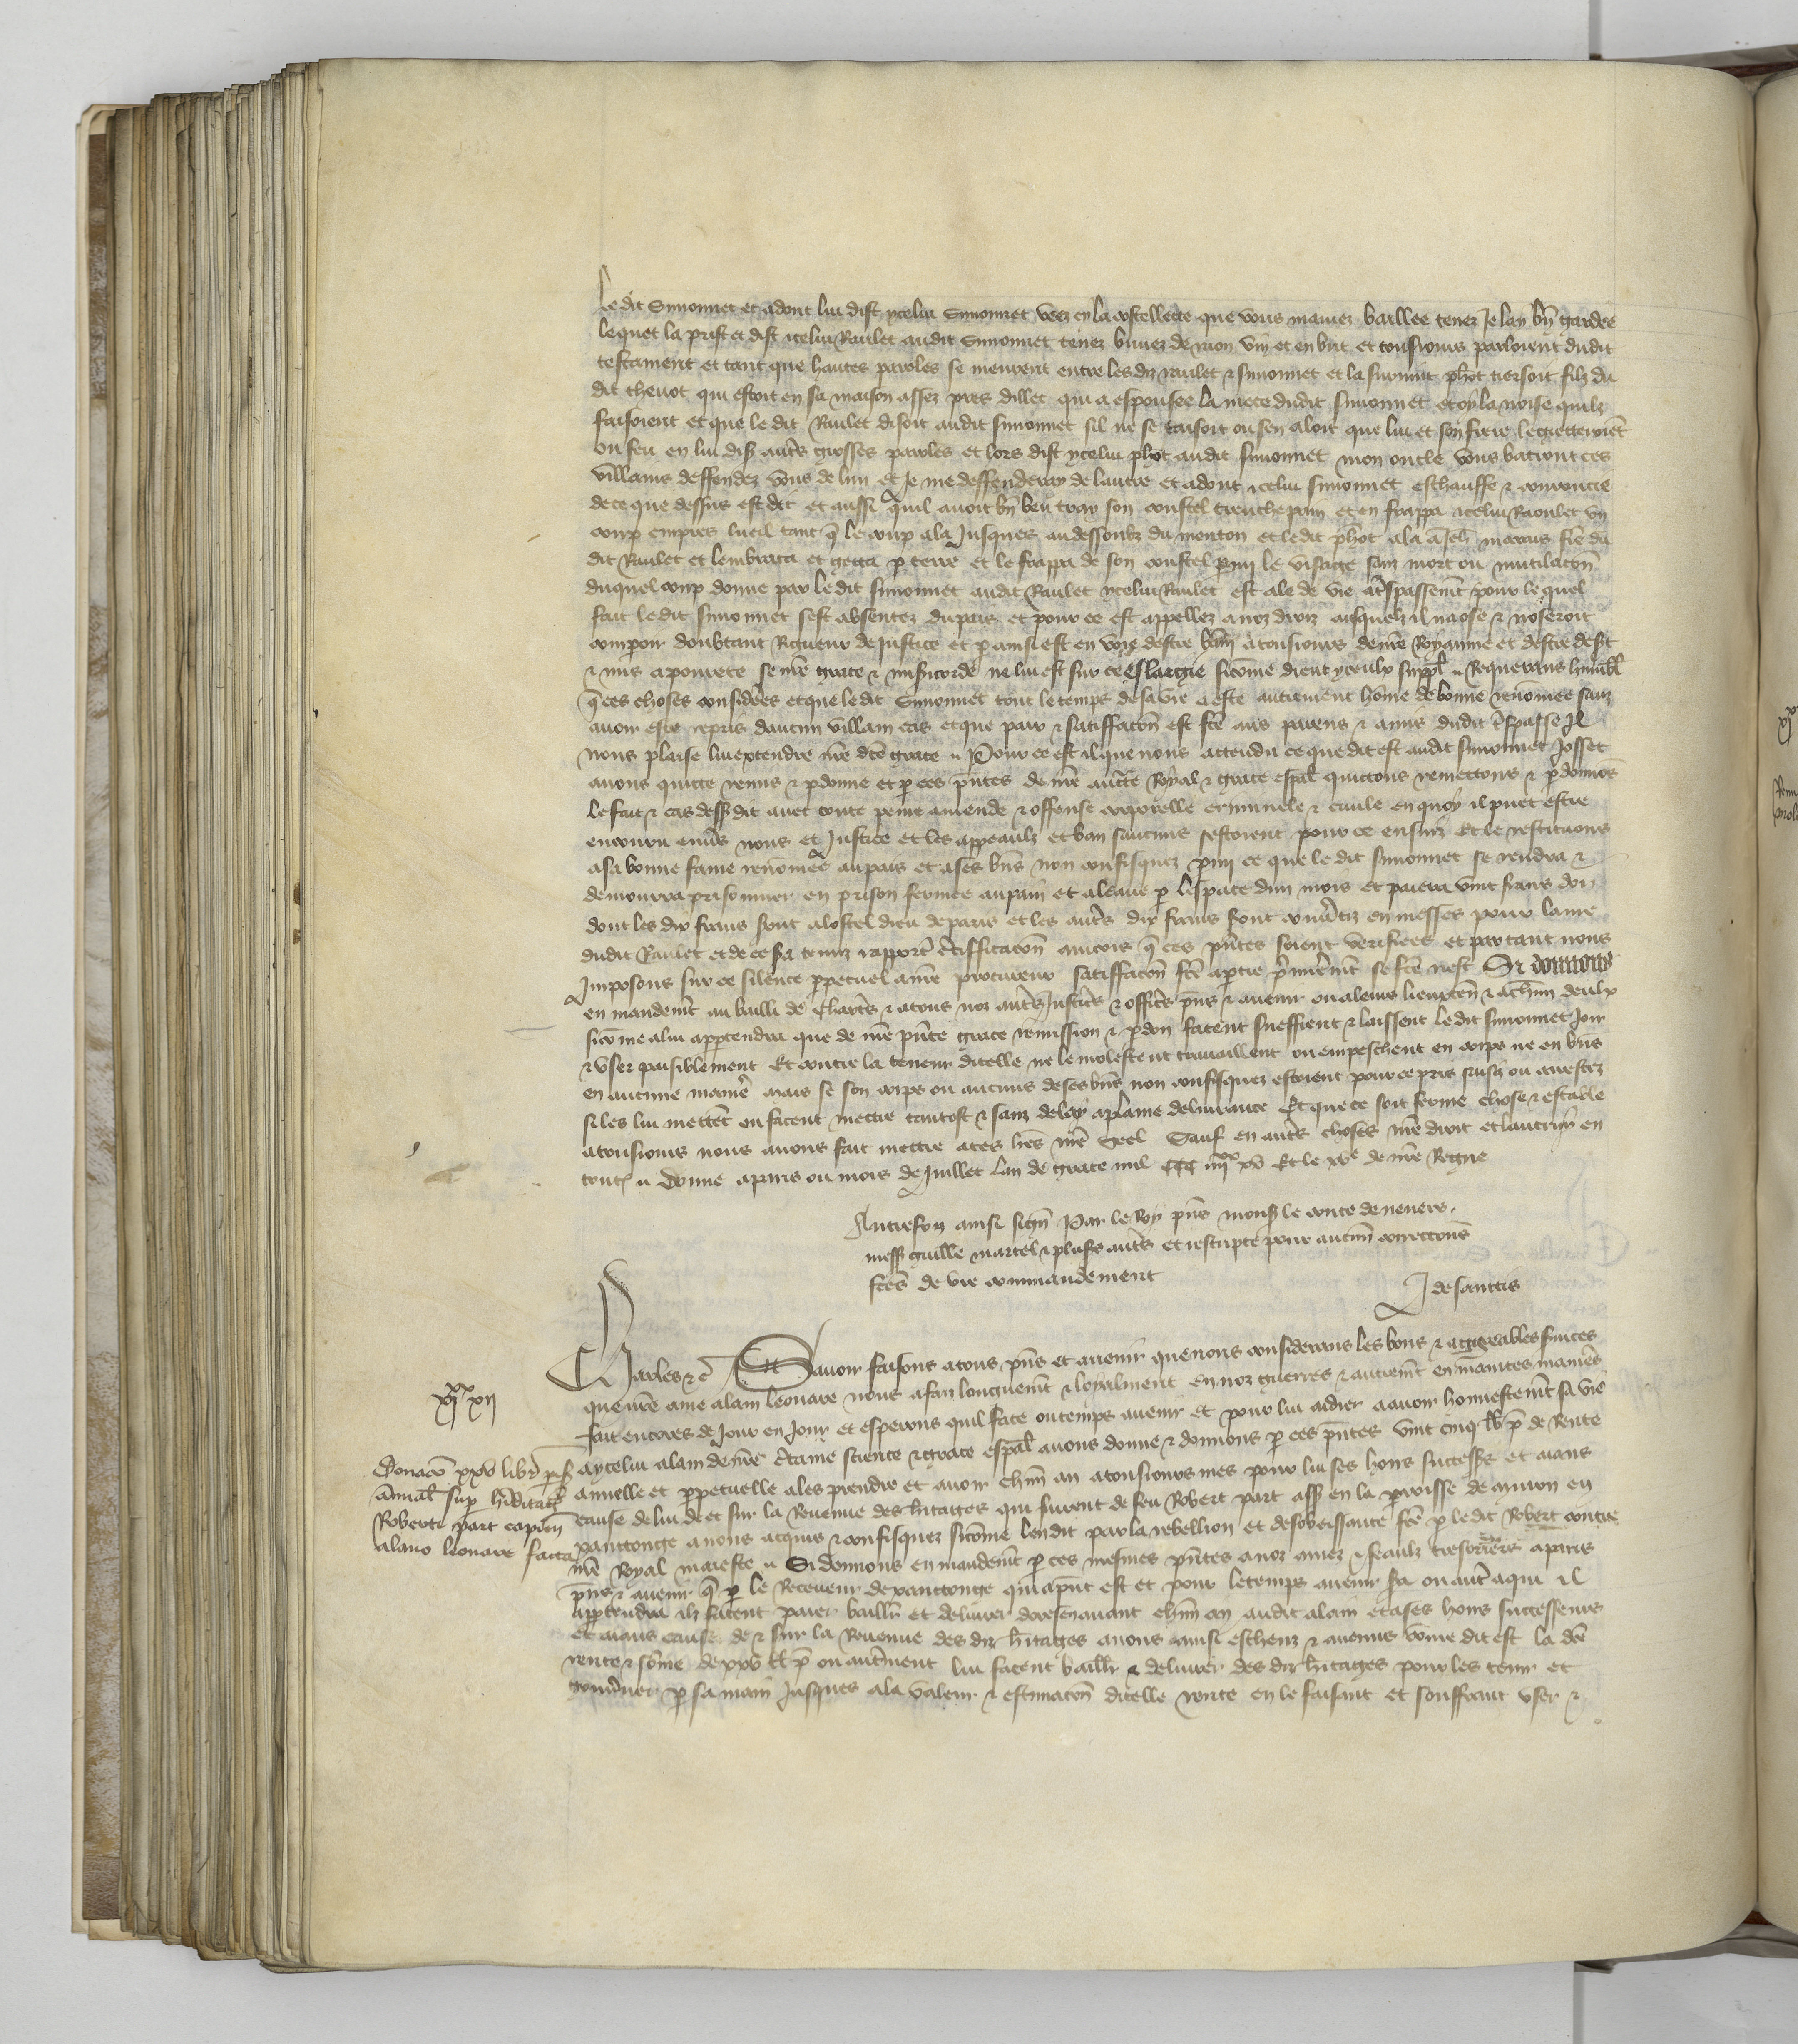 Le dit Simonnet et adont lui dist ycelui Simonnet veez cy la costellette que vous maviez baillee tenez Je lay bn gardee
lequel la prist et dist icelui Raulet audit Simonnet tenez buvez de mon vin et en but et tousiours parloient dudit
testament et tant que hautes paroles se meurent entre les diz raulet & simonnet et la survint phot tiersoit filz du
dit thenot qui estoit en sa maison assez pres dillec qui a espousee la niece dudit simonnet et oy la noise quilz
faisoient et que le dit Raulet disoit audit simonnet sil ne se taisoit ou sen aloit que lui et son frere le getteroiet
ou feu en lui dis autrs grosses paroles et lors dist ycelui phot audit simonnet mon oncle vous batront ces
villains deffendez vous de lun et Je me deffenderay de lautre et adont icelui simonnet eschauffe & courroucie
de ce que dessus est dit et aussi quil avoit bn beu tray son coustel trenchepain et en frappa icelui Raoulet un
coup empres lueil tant q le coup ala Jusques au dessoubz du menton et ledit phot ala a Jeh marais fre du
dit Raulet et lembraca et getta p terre et le frappa de son coustel parmi le visage sanz mort ou mutilacon
duquel coup donne par le dit simonnet audit Raulet ycelui Raulet est ale de vie a trespassemt pour lequel
fait le dit simonnet sest absentez du pais et pour ce est appellez a noz droiz ausquelz il nа ose & noseroit
comparoir doubtant Rigueur de Justice et p ainsi est en voye destre bani a tousiours de nre Royaume et destre dest
& mis a povrete se nre grace & misericorde ne lui est sur ce eslargie sicome dient yceulx suppl Requerans humbl
q ces choses considerees et que le dit Simonnet tout le temps de sa vie a este autrement home de bonne renomee sanz
avoir este repris daucun villain cas et que paix & satiffacon est fce aus parens & amis dudit trespasse Il
nous plaise lui extendre nre dce grace Pour ce est il que nous attendu ce que dit est audit simonnet Josset
avons quicte remis & pdonne et p ces pntes de nre aucte Royal & grace espal quictons remettons & pdonnos
le fait & cas dessus dit avec toute peine amende & offense corporelle criminele & civile en quoy il puet estre
encouru envers nous et Justice et les appeaulz et ban saucuns sestoient pour ce ensuiz Et le restituons
a sa bonne fame renomee au pais et a ses bns non confisquez pmi ce que le dit simonnet se rendra &
demourra prisonnier en prison fermee au pain et a leaue p lespace dun mois et paiera vint frans dor
dont les dix frans sont a lostel dieu de paris et les autrs dix frans sont convertiz en messes pour lame
dudit Raulet et de ce sa tenuz rapportr certifficacon aincois q ces pntes soient verifiees et partant nous
Imposons sur ce silence perpetuel a nre procureur satiffacon fce a partie premieremt se fce nest Si donnons
en mandemt au bailli de Chartrs & a tous noz autrs Justicrs & officrs pns & avenir ou a leurs lieuxten & a chun deulx
sicome a lui appartendra que de nre pnte grace remission & pdon facent sueffrent & laissent le dit simonnet Joir
& user paisiblement Et contre la teneur dicelle ne le molestent travaillent ou empeschent en corps ne en bns
en aucune manire mais se son corps ou aucuns de ses bns non confisquez estoient pour ce pris saisiz ou arrestez
si les lui mettent ou facent mettre tantost & sanz delay a plaine delivrance Et que ce soit ferme chose & estable
a tousiours nous avons fait mettre a ces lres nre seel Sauf en autrs choses nre droit et lautruy en
toutes Donne a paris ou mois de Juillet lan de grace mil CCC iiijxx xv Et le xve de nre Regne
Autrefoiz ainsi signe Par le Roy pns mons le conte de nevers
mess guille martel & plusrs autrs et rescripte pour aucun correccons
fces de vre commandement
J de sanctis
Charles &c Savoir faisons a tous pns et avenir que nous considerans les bons & aggreables services
que nre ame alain leonare nous a faiz longuemt & loyalment en noz guerres & autremt en maintes manirs
fait encores de Jour en Jour et esperons quil face ou temps avenir et pour lui aidier a avoir honnestemt sa vie
xjxx xij
a ycelui alain de nre certaine science & grace espal avons donne & donnons p ces pntes vint cinq lb p de Rente
annuelle et perpetuelle a les prendre et avoir chun an a tousiours mes pour lui ses hoirs success et aians
cause de lui de et sur la Revenue des hitages qui furent de feu Robert part ass en la parroisse de ayron en
xanctonge a nous acquis & confisquez sicome len dit par la rebellion et desobeissance fce p le dit Robert contre
nre Royal mageste Si donnons en mandemt p ces mesmes pntes a noz amez & feaulz tresoriers a paris
pns & avenir q p le Receveur de xanctonge qui a pnt est et pour le temps avenir sa ou autr a qui il
appartendra ilz facent paier baillr et delivrer doresenavant chun an audit alain et a ses hoirs successeurs
et aians cause de & sur la Revenue des diz hitages a nous ainsi escheuz & avenus come dit est la dce
rente & some de xxv lb p ou autrement lui facent baillr & delivrer des diz hitages pour les tenir et
gouverner p sa main Jusques a la valeur & estimacon dicelle rente en le faisant et souffrant user &
Donaco xxv libr paris
annual sup hditacibus
Roberti part
alano leonare facta